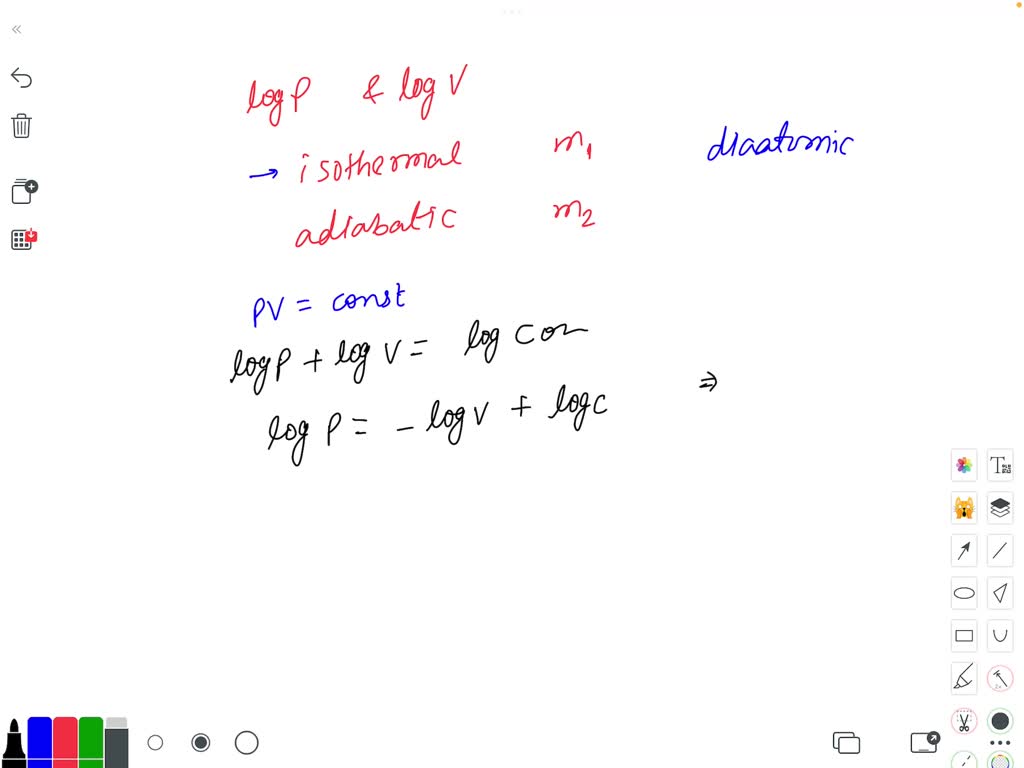 log P & log V
→ isothermal m₁ diaatomic
adiabatic m₂
PV = const
log P + log V = log con
log P = - log V + log C ⇒